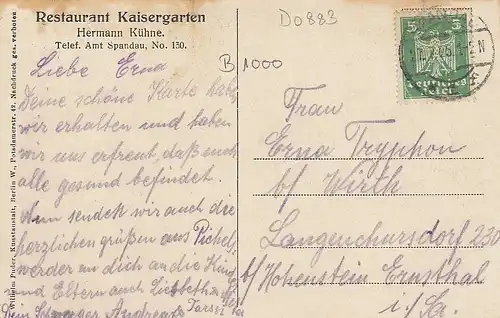 Restaurant Kaisergarten
Hermann Kühne.
Telef. Amt Spandau, No. 130.
D0883
B 1000
5 5
Liebe Erna
Deine schöne Karte habe
wir erhalten und haben
wir uns erfreut, daß euch
alle gesund befindet.
Nun sendek wir auch die
herzlichen grüßen aus Pichels
werder an dich an die Kind
und Eltern auch Liesbeth
Schwager Andreas
Frau
Erna Tryphon
b/ Wirth
Langenchursdorf 230
b/ Hohenstein Ernsthal
i/Sa.
Kunstanstalt, Berlin W., Potsdamerstr. 42. Nachdruck ges. verboten